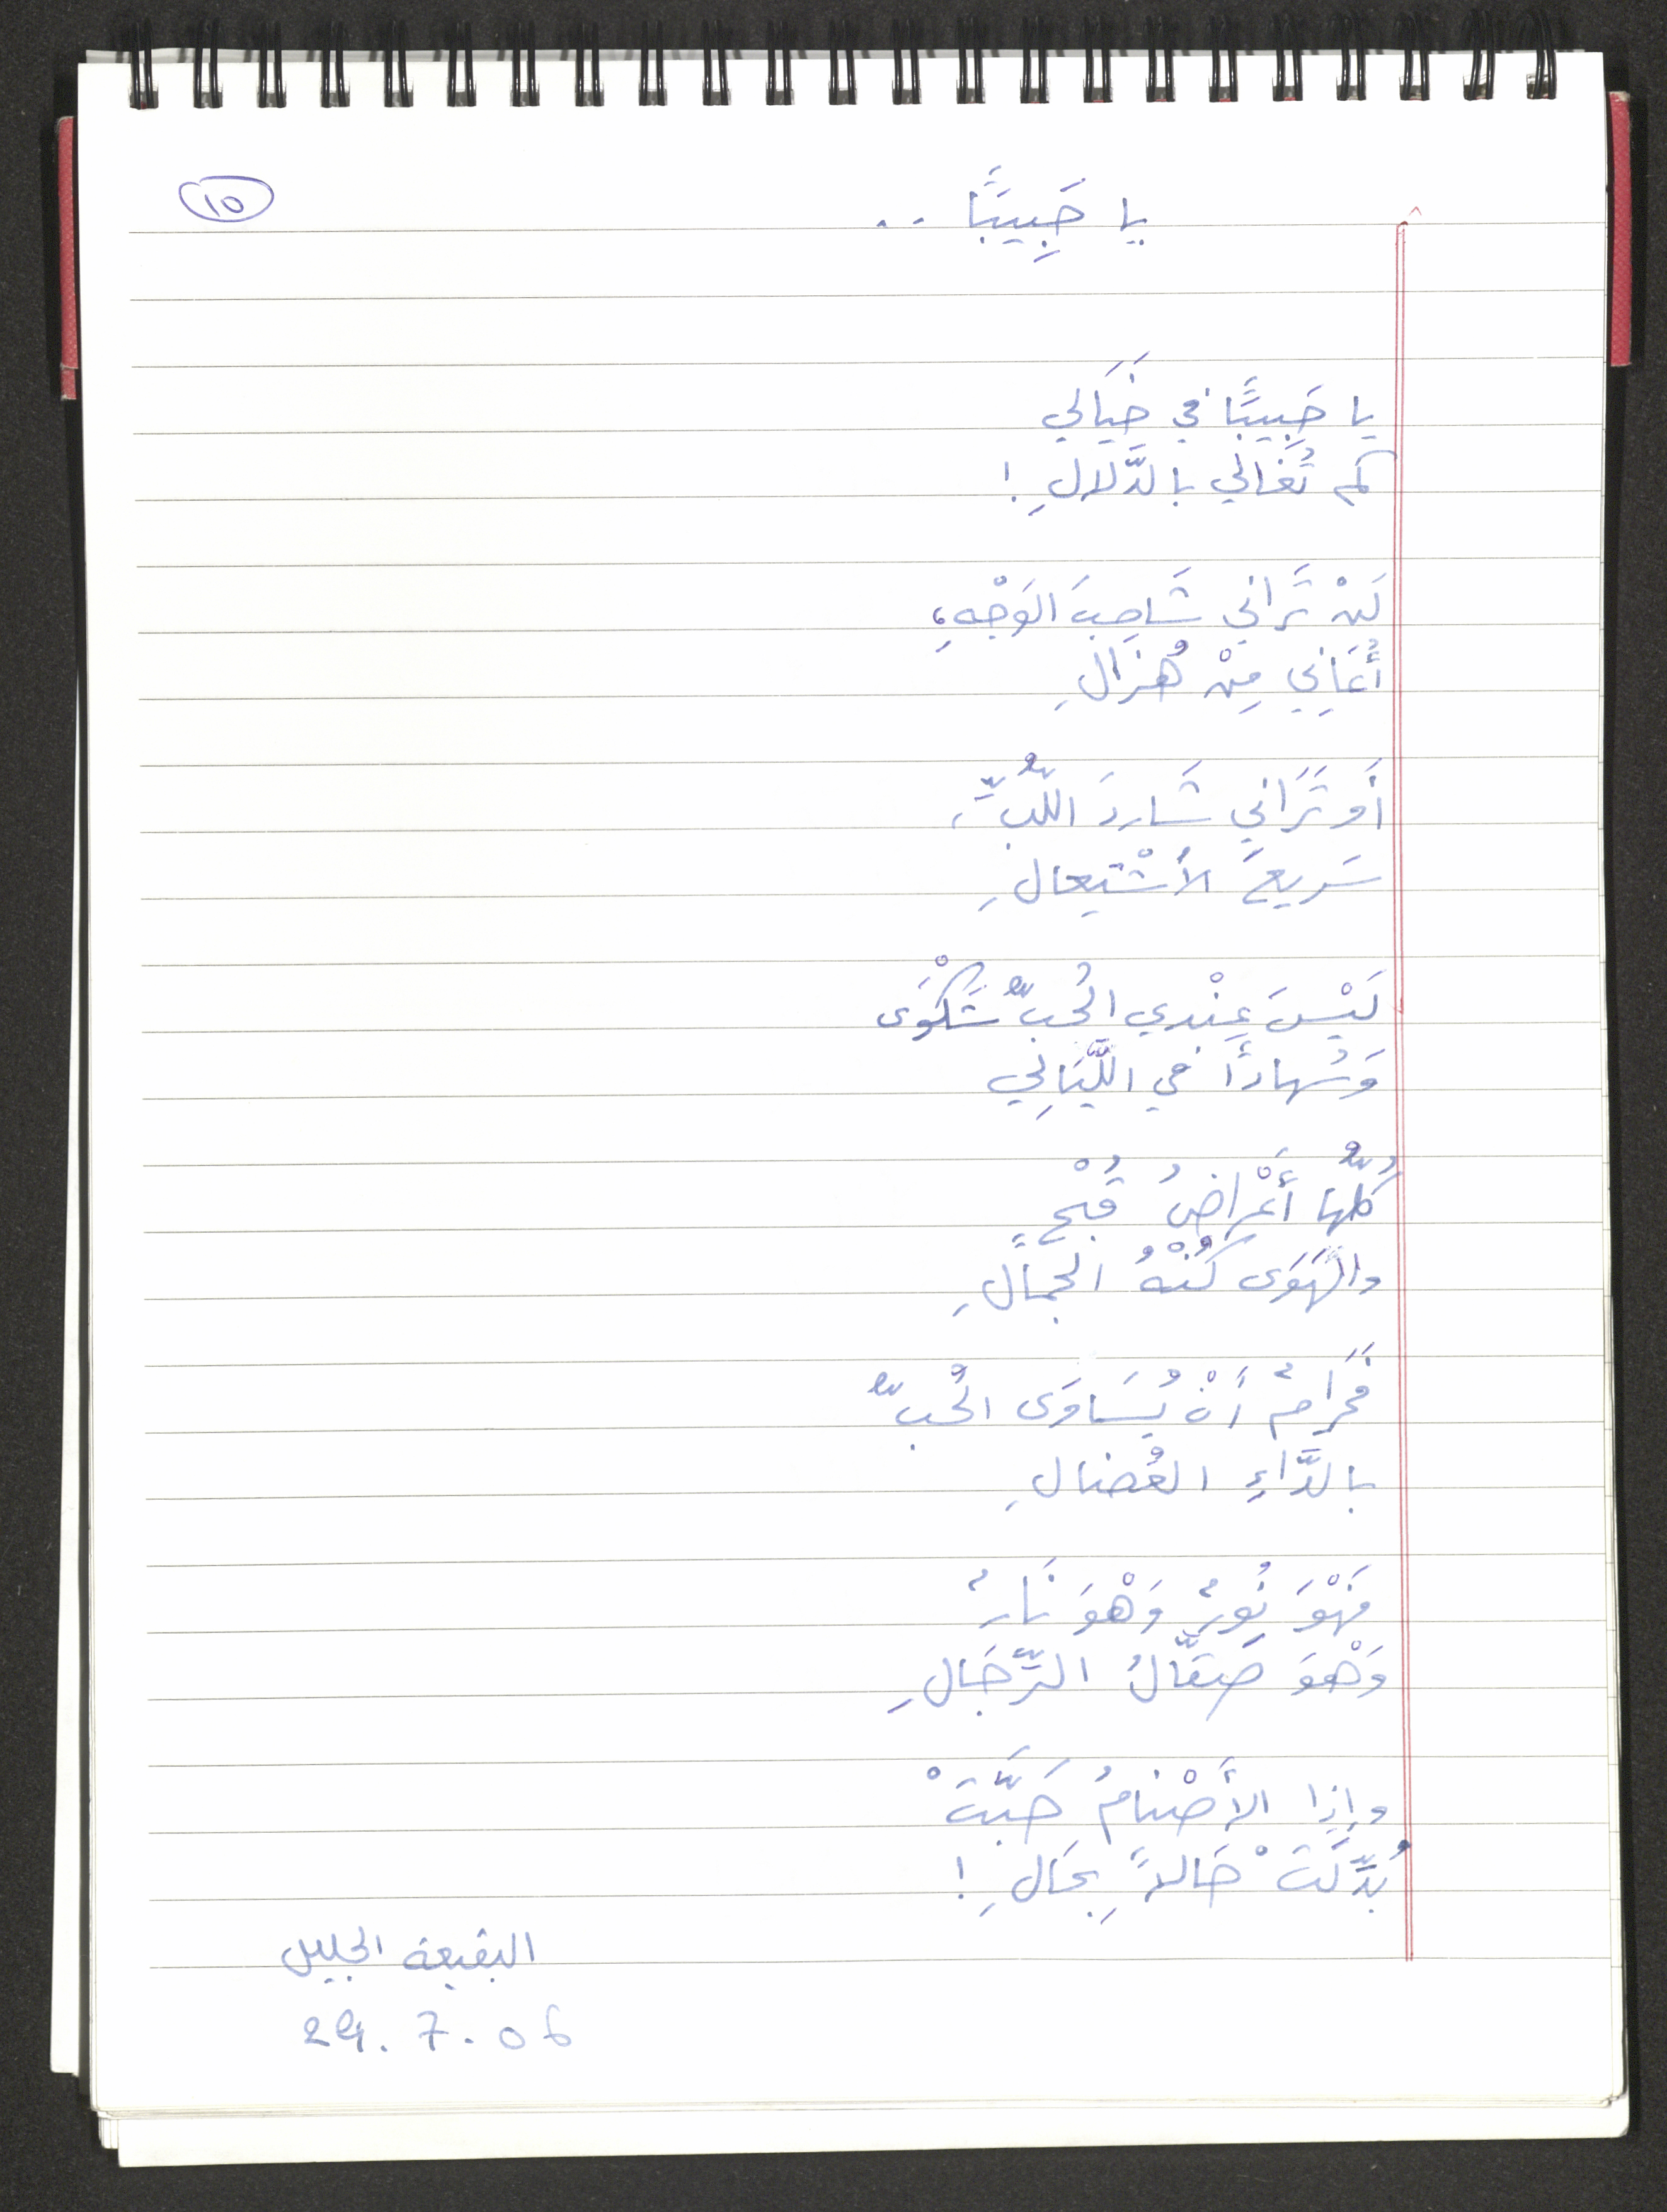 10
يا حَبِيبًَا ..
يا حَبيبًَا في خَيَالي
كم تُغَالي بالدَّلالِ !
لَنْ تَراني شَاحِبَ الوَجْهِ،
أُعَانِي مِنْ هُزالِ
أَو تَرَاني شَاردَ اللُّبِّ،
سَريعَ الأشْتِعالِ
لَيْسَ عِنْدي الحُبُّ شَكْوَى
وَسُهادًا في اللَّيَالِي
كُلُّها أَعْراضُ قُبْحٍ
والهَوَى كُنْهُ الجمالِ
فَحَرَامٌ أَنْ يُسَاوَى الحُبُّ
بالدَّاءِ العُضالِ
فَهْوَ نُورٌ وَهْوَ نَارٌ
وَهْوَ صَقَّالُ الرِّجَالِ
وإِذا الأَصْنامُ حَبَّتْ
بُدِّلَتْ حَالاً بِحَالِ !
البقيعة الجليل
29.7.06